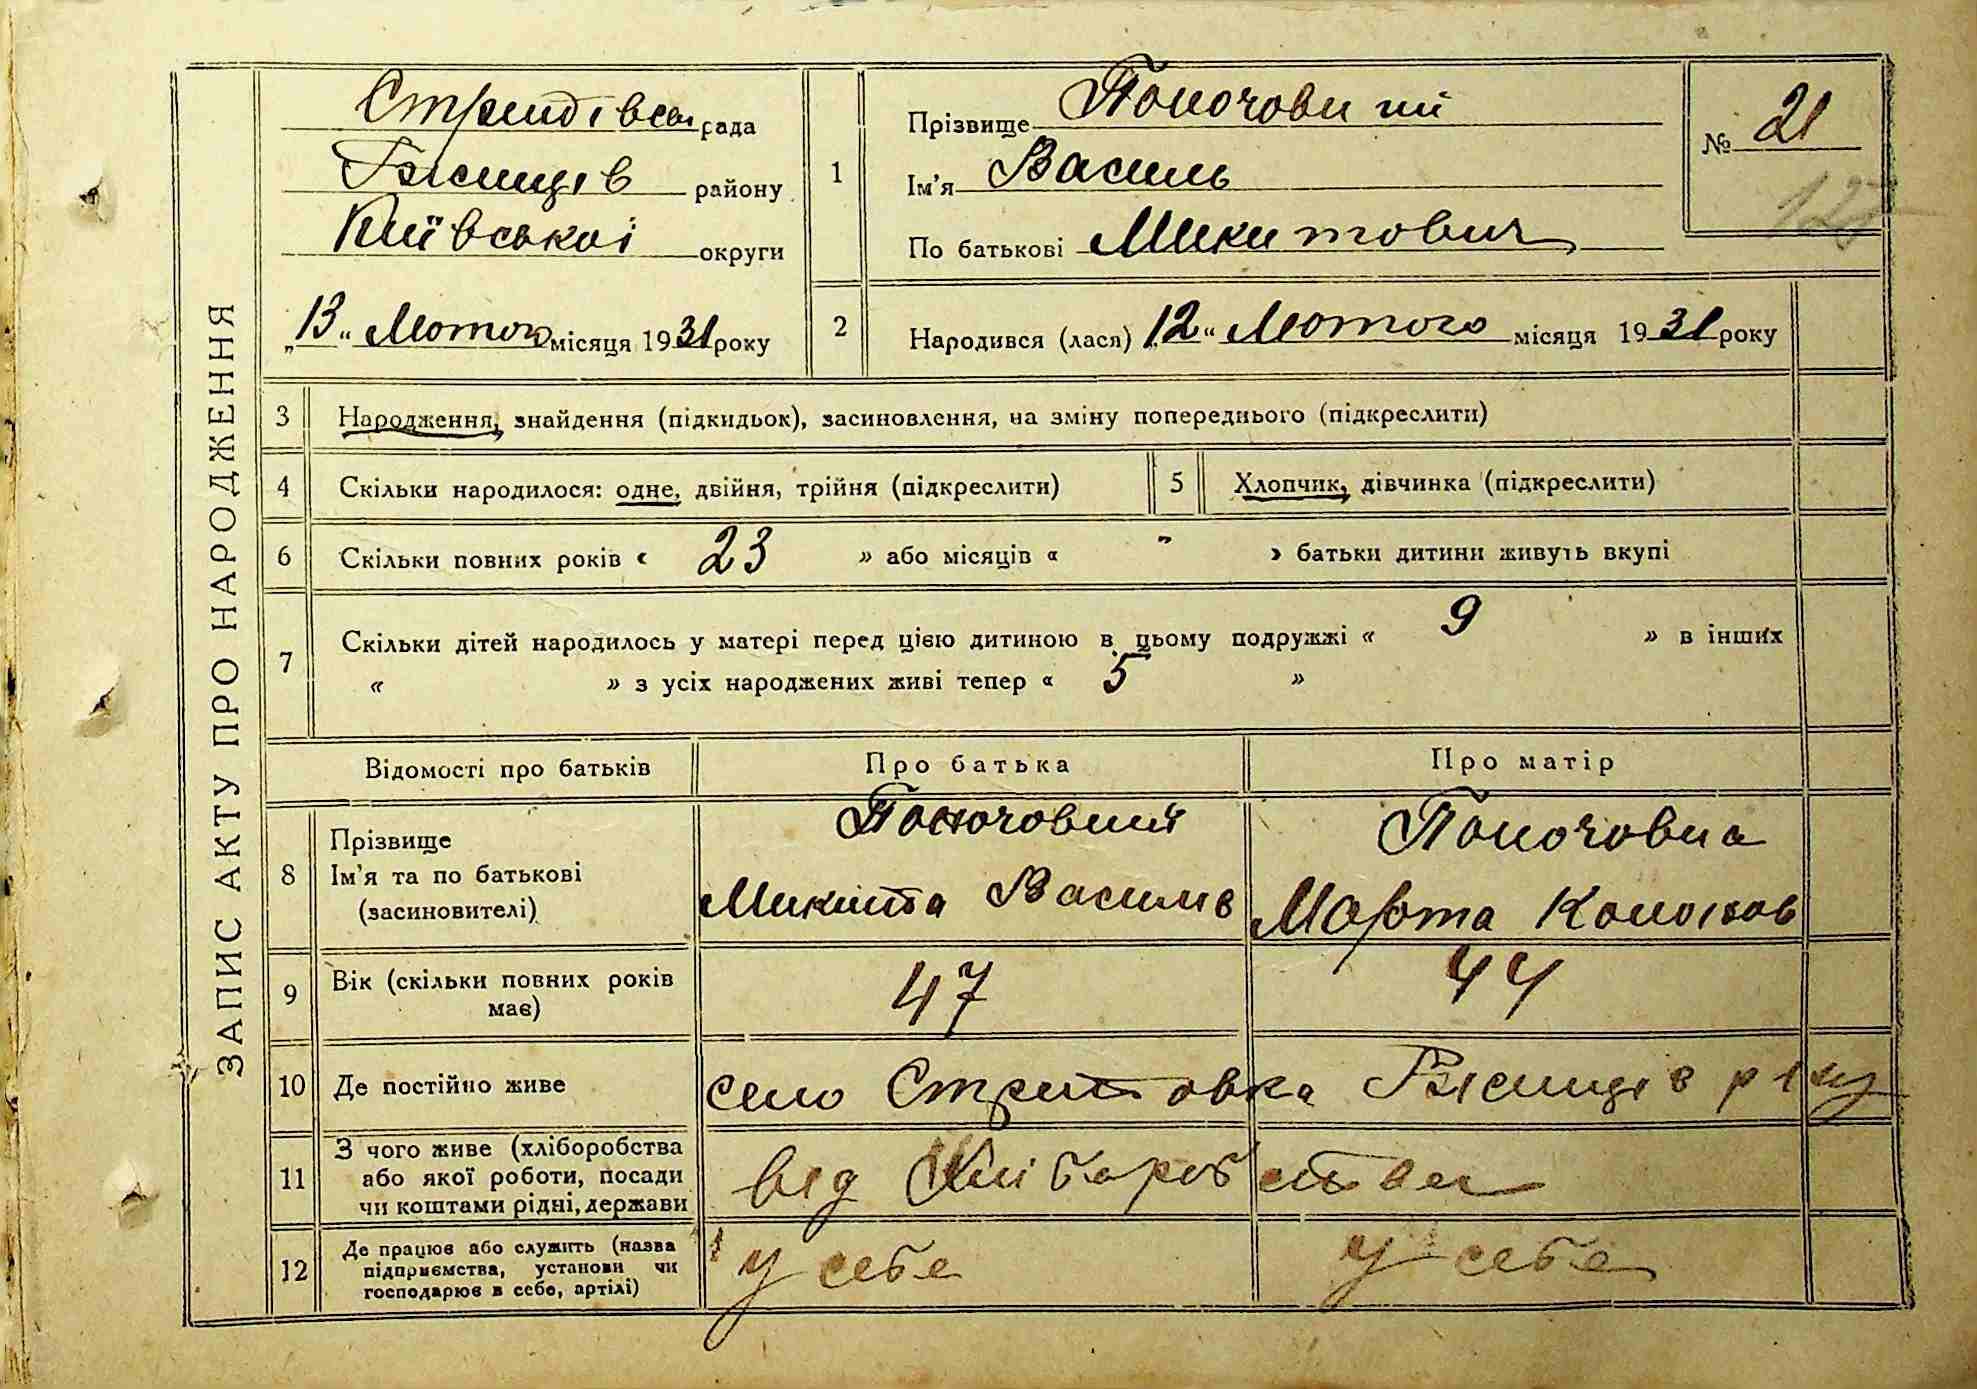 ЗАПИС АКТУ ПРО НАРОДЖЕННЯ
рада
району
Київської округи
„13“ Лютого місяця 1931 року
1
Прізвище
Ім'я Василь
По батькові Микитович
№ 21
2
Народився (лася) „12“ Лютого місяця 1931 року
3 Народження, знайдення (підкидьок), засиновлення, на зміну попереднього (підкреслити)
4 Скільки народилося: одне, двійня, трійня (підкреслити)
5 Хлопчик, дівчинка (підкреслити)
6 Скільки повних років « 23 » або місяців « " » батьки дитини живуть вкупі
7 Скільки дітей народилось у матері перед цією дитиною в цьому подружжі « 9 » в інших
« » з усіх народжених живі тепер « 5 »
Відомості про батьків
Про батька
Про матір
8 Прізвище
Ім'я та по батькові
(засиновителі)
Микита Василів
Марта
9 Вік (скільки повних років
має)
47
44
10 Де постійно живе
село
11 З чого живе (хліборобства
або якої роботи, посади
чи коштами рідні, держави
від Хліборобства
12 Де працює або служить (назва
підприємства, установи чи
господарює в себе, артілі)
у себе
у себе